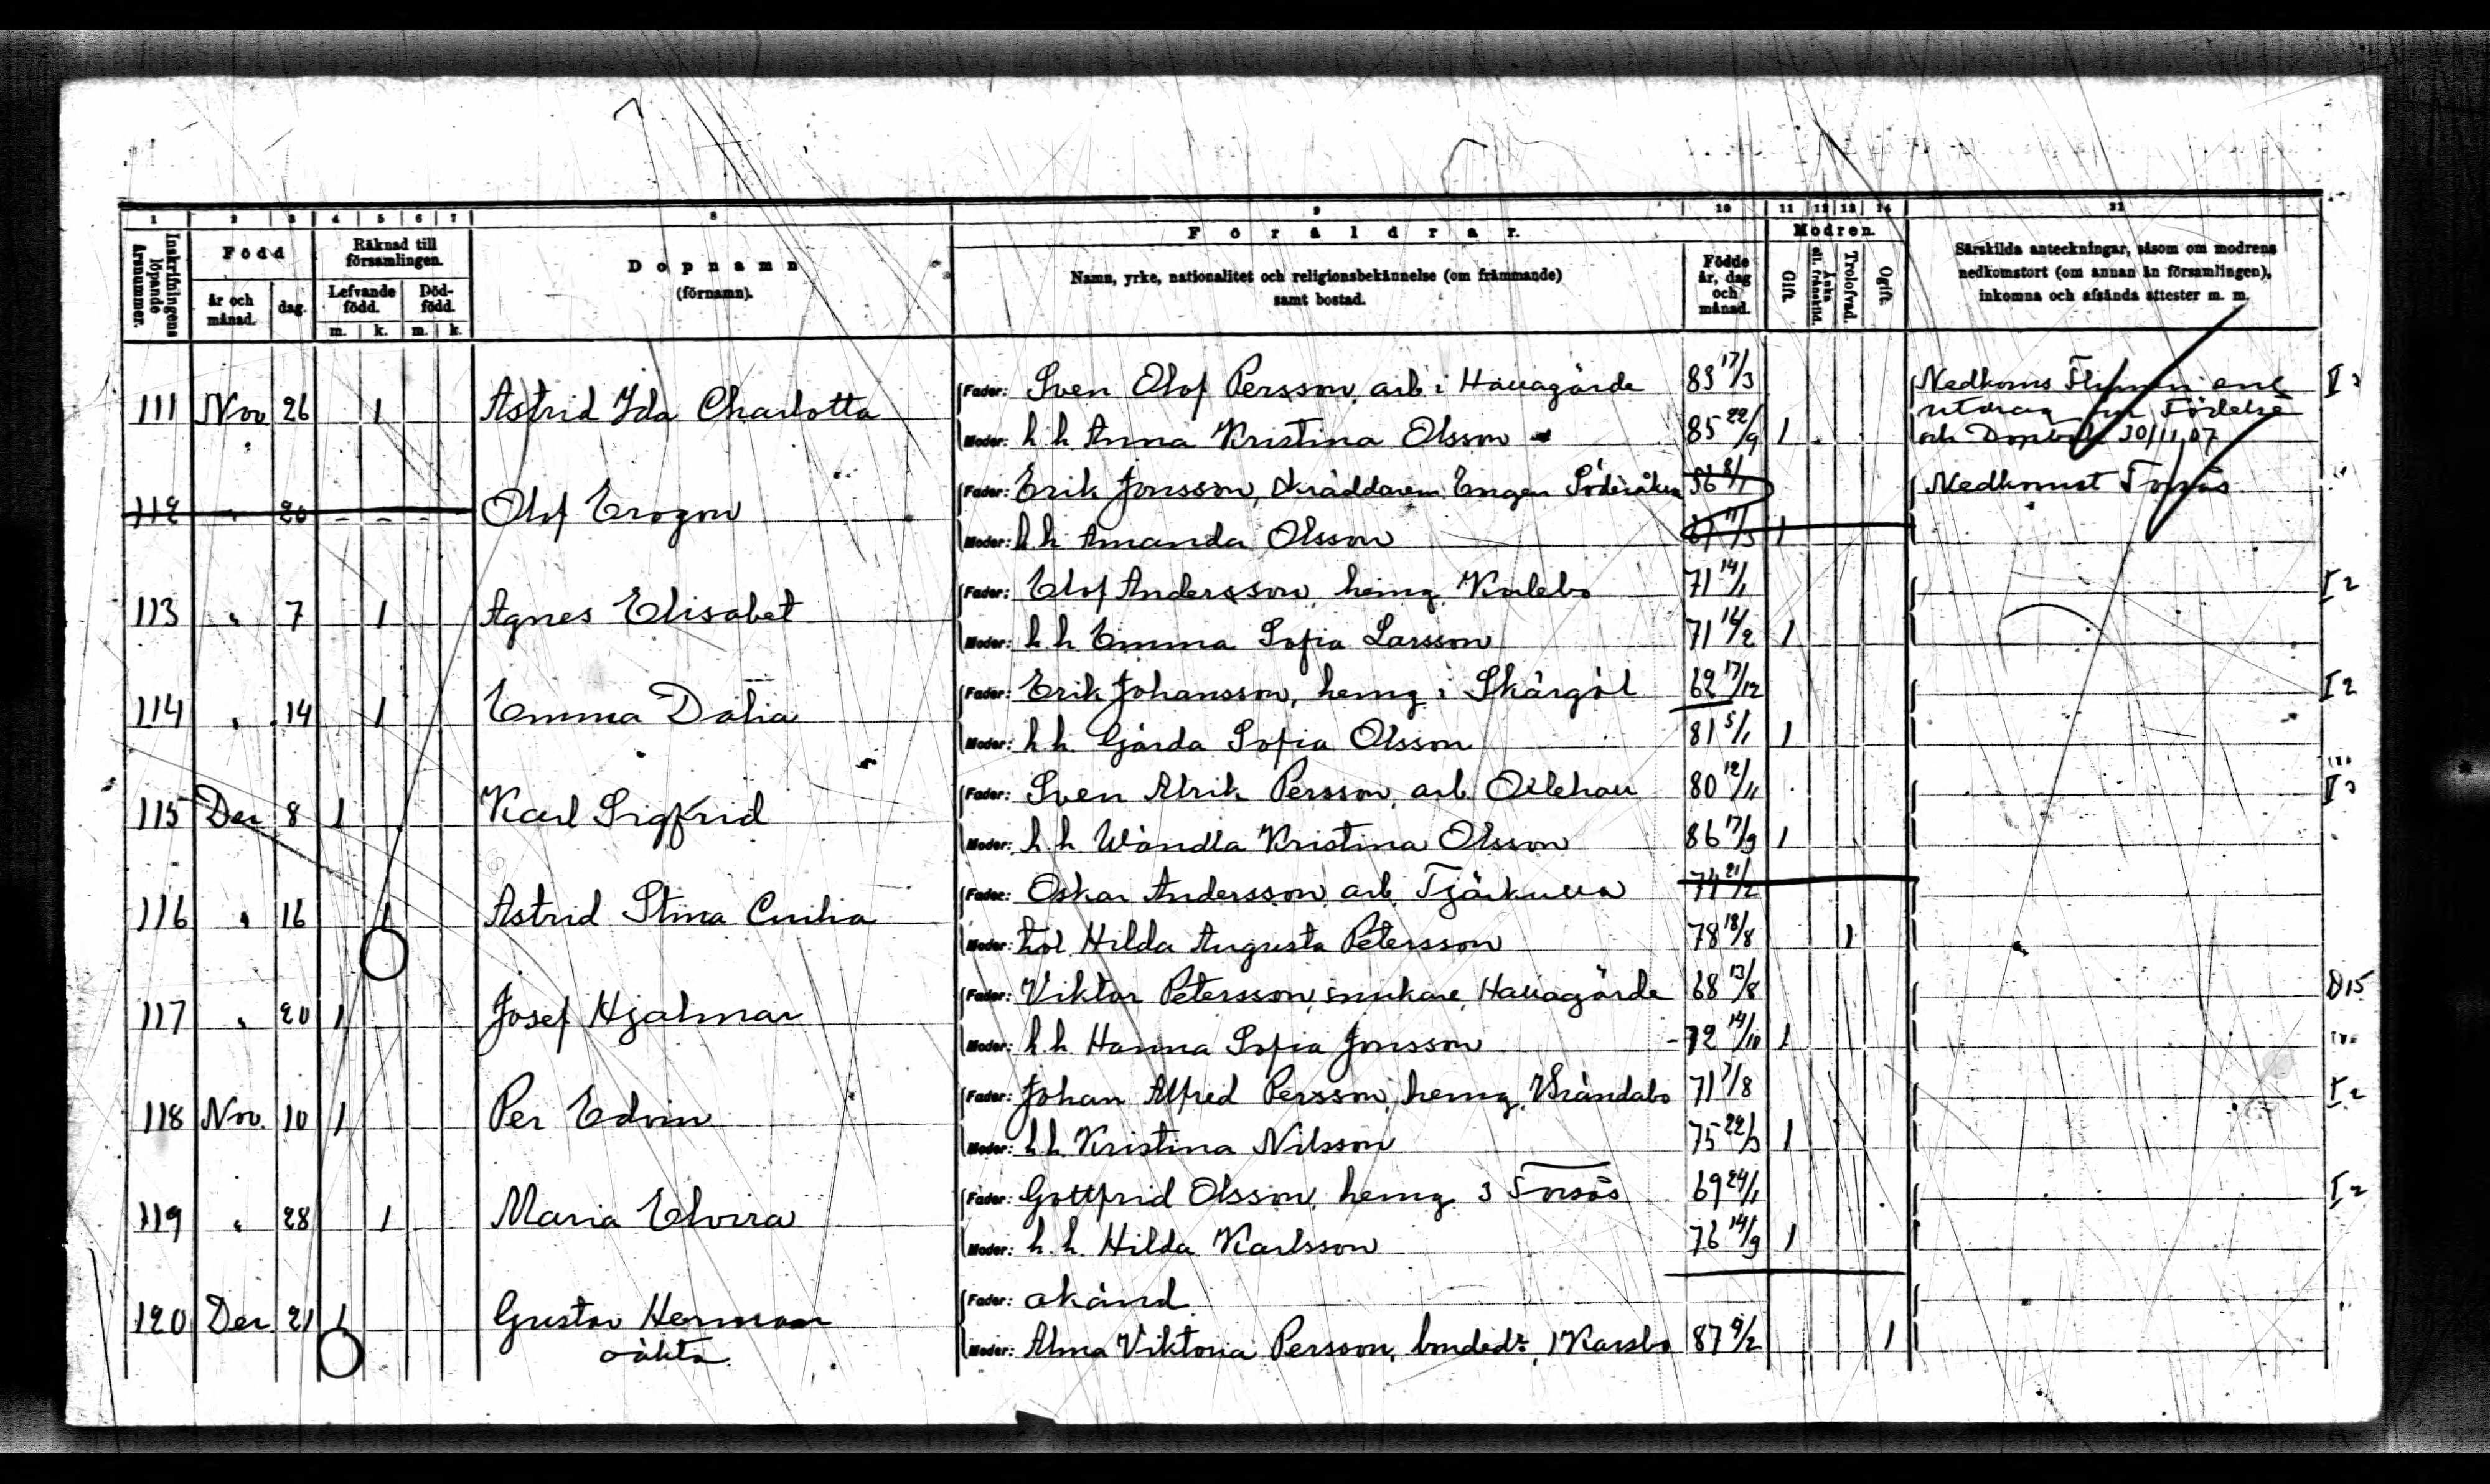 1 2 3 4 5 6 7 8 9 10 11 12 13 14 21
Inskrifningens löpande årsnummer.
Född
år och månad.
dag.
Räknad till församlingen.
Lefvande född.
Död-född.
m. k. m. k.
Dopnamn
(förnamn).
Föräldrar.
Namn, yrke, nationalitet och religionsbekännelse (om främmande)
samt bostad.
Födde år, dag och månad.
Modren.
Gift.
Änka ell. frånskild.
Trolofvad.
Ogift.
Särskilda anteckningar, såsom om modrens
nedkomstort (om annan än församlingen),
inkomna och afsända attester m. m.
111 Nov 26 1 Astrid Ida Charlotta
Fader: Sven Olof Persson, arb i Hallagärde 83 17/3
Moder: h h Anna Kristina Olsson 85 22/9 1
Nedkoms enl
utdrag Födelse
och Dopbok 30/11 07
112 " 20 - - - Olof Erogon
Fader: Erik Jonsson, Skräddaren Engen Söderåkra 56 8/1
Moder: h. h Amanda Olsson 1
Nedkomst Torsås
113 " 7 1 Agnes Elisabet
Fader: Elof Andersson, hemg. 71 14/1
Moder: h h Emma Sofia Larsson 71 14/2 1
I 2
114 " 14 1 Emma Dalia
Fader: Erik Johansson, hemg i Skärgöl 62 17/12
Moder: h h Gärda Sofia Olsson 81 5/1 1
I 2
115 Dec 8 1 Karl Sigfrid
Fader: Sven Alrik Persson, arb. 80 12/11
Moder: h. h Wändla Kristina Olsson 86 17/9 1
116 " 16 1 Astrid Stina Cecilia
Fader: Oskar Andersson, arb, Tjärkulla 74 21/2
Moder: Hilda Augusta Petersson 78 18/8 1
117 " 20 1 Josef Hjalmar
Fader: Viktor Petersson, snickare, Hallagärde 68 13/8
Moder: h. h. Hanna Sofia Jonsson 72 14/10 1
D15
118 Nov. 10 1 Per Edvin
Fader: Johan Alfred Persson, hemg, Brändabo 71 7/8
Moder: h h. Kristina Nilsson 75 22/3 1
I 2
119 " 28 1 Maria Elvira
Fader: Gottfrid Olsson, hemg 3 Torsås 69 24/1
Moder: h. h. Hilda Karlsson 76 14/9 1
I 2
120 Dec 21 1 Gustav Herman
oäkta.
Fader: okänd
Moder: Alma Viktoria Persson, bondedr, 1 Karsbo 87 9/2 1